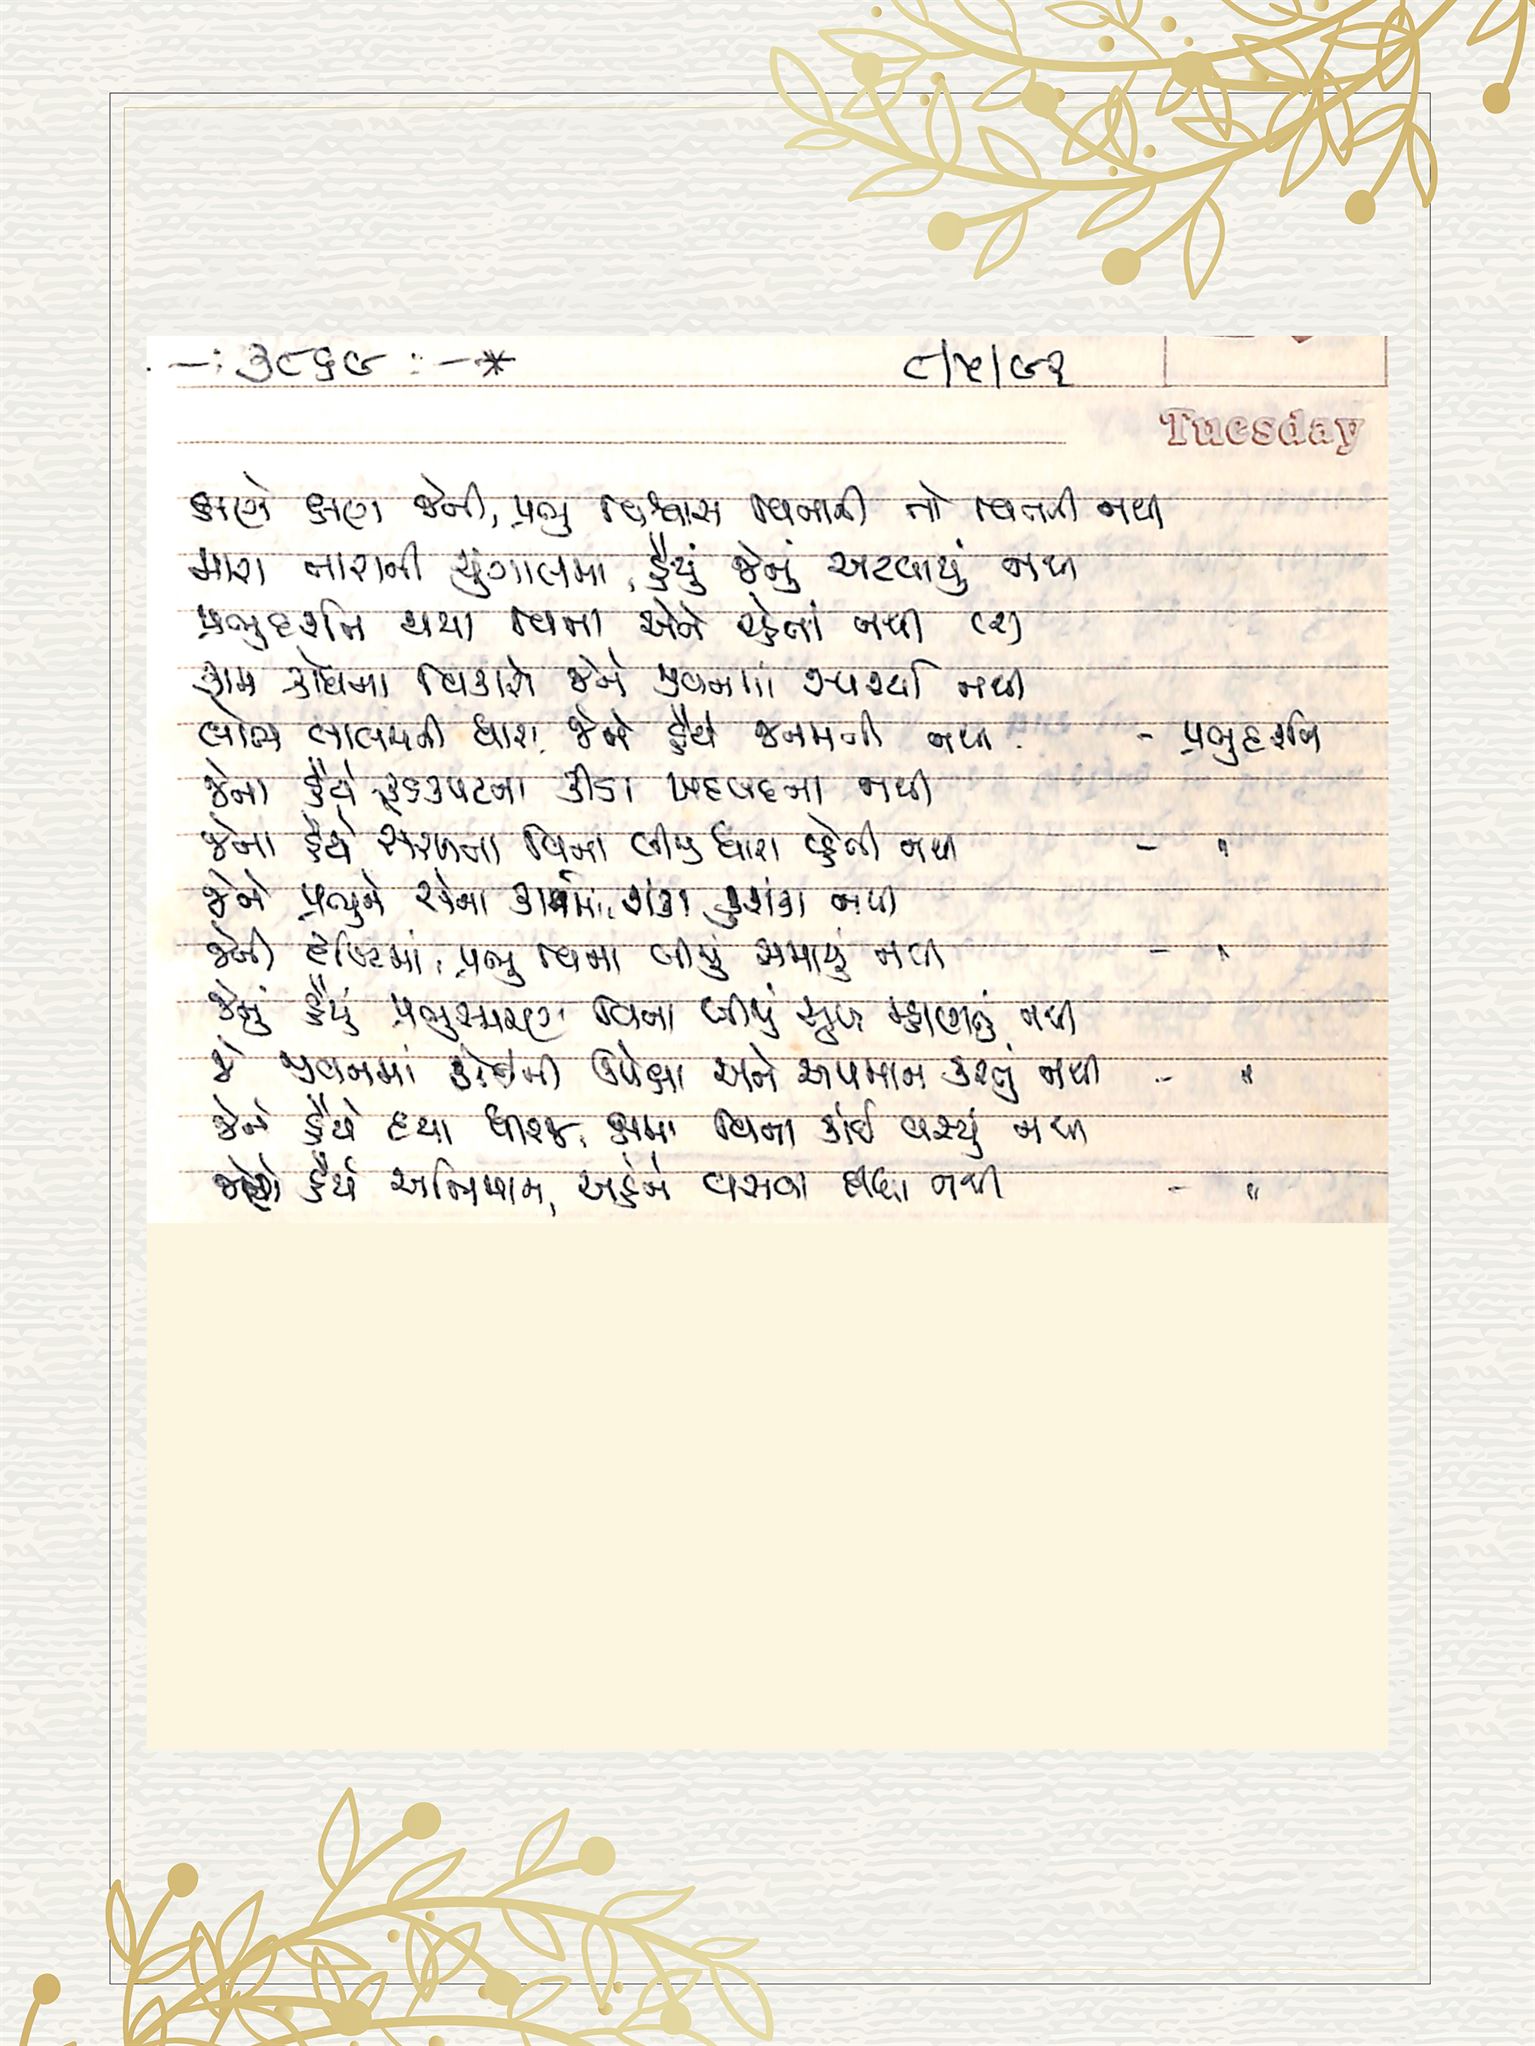 -: ૩૮૬૯ :- *
૮/૫/૯૨
Tuesday
ક્ષણે ક્ષણ જેની, પ્રભુ વિશ્વાસ વિનાની તો વિતતી નથી
મારા તારાની ચુંગાલમાં, હૈયું જેનું અટવાયું નથી
પ્રભુદર્શન થયા વિના એને રહેતાં નથી (૨)
કામ ક્રોધના વિકારો જેને જીવનમાં સ્પર્શ્યા નથી
લોભ લાલચની ધારા જેને હૈયે જનમતી નથી - પ્રભુદર્શન
જેના હૈયે કૂડકપટના કીડા ખદબદતા નથી
જેના હૈયે સરળતા વિના બીજી ધારા વ્હેતી નથી - "
જેને પ્રભુને એના કાર્યમાં, શંકા કુશંકા નથી
જેની દૃષ્ટિમાં, પ્રભુ વિના બીજું સમાયું નથી - "
જેનું હૈયું પ્રભુસ્મરણ વિના બીજું સુખ મ્હાણતું નથી
જે જીવનમાં કોઈની ઉપેક્ષા અને અપમાન કરતું નથી - "
જેને હૈયે દયા ધીરજ, ક્ષમા વિના કાંઈ વસ્યું નથી
જેણે હૈયે અભિમાન, અહંને વસવા દીધા નથી - "